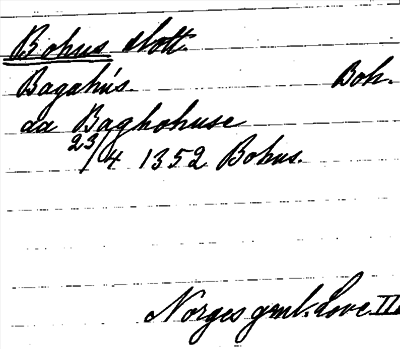 Bohus slott.
Bagahús. Boh.
aa Baghohuse
23/4 1352 Bohus.
Norges gml. Love III